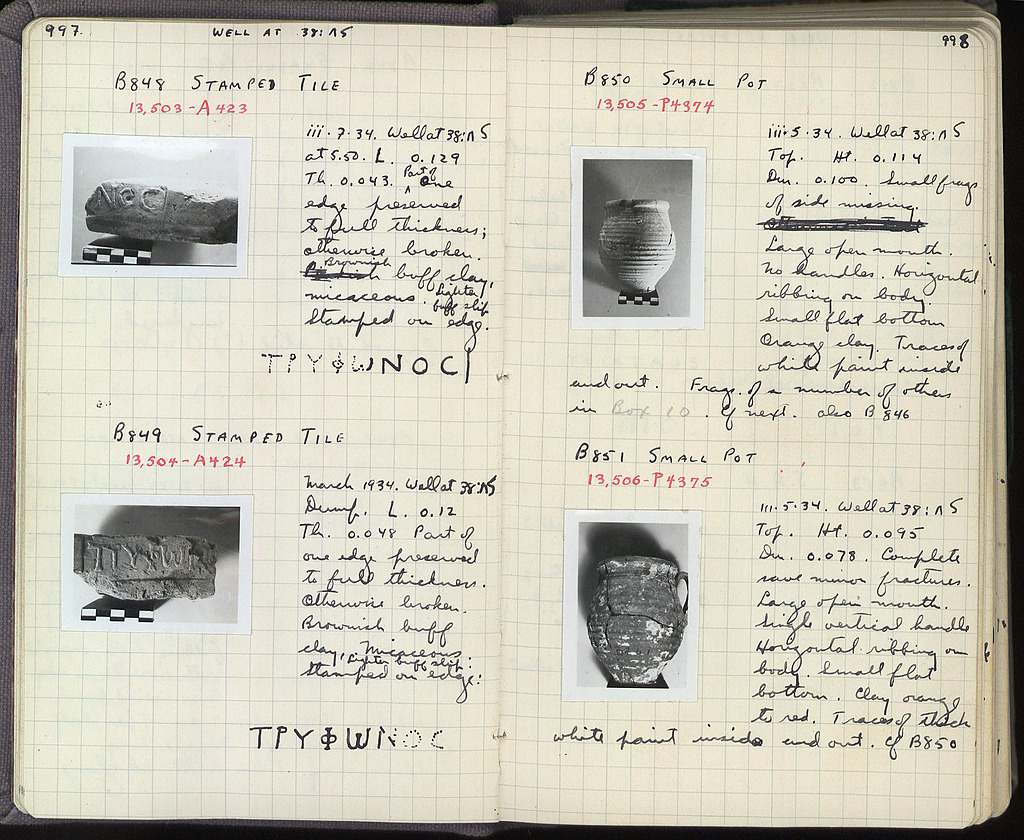 997.
WELL AT 38:ΛΣ
B848 STAMPED TILE
13,503-A423
iii.7.34. Well at 38:ΛΣ
at 5.50. L. 0.129
Th. 0.043. Part of one
edge preserved
to full thickness;
otherwise broken.
Brownish buff clay,
micaceous. Lighter buff slip.
Stamped on edge.
ΤΡΥΦWΝΟC
B849 STAMPED TILE
13,504-A424
March 1934. Well at 38:ΛΣ
Dump. L. 0.12
Th. 0.048 Part of
one edge preserved
to full thickness.
Otherwise broken.
Brownish buff
clay, micaceous.
Lighter buff slip.
Stamped on edge:
ΤΡΥΦWΝΟC
998
B850 SMALL POT
13,505-P4374
iii.5.34. Well at 38:ΛΣ
Top. Ht. 0.114
Dm. 0.100. Small frags
of side missing.
Large open mouth.
No handles. Horizontal
ribbing on body.
Small flat bottom
Orange clay. Traces of
white paint inside
and out. Frags. of a number of others
in Box 10. Cf next. also B846
B851 SMALL POT
13,506-P4375
iii.5.34. Well at 38:ΛΣ
Top. Ht. 0.095
Dm. 0.078. Complete
save minor fractures.
Large open mouth.
Single vertical handle
Horizontal ribbing on
body. Small flat
bottom. Clay orange
to red. Traces of thick
white paint inside and out. Cf B850
NOC
ΤΡΥΦW